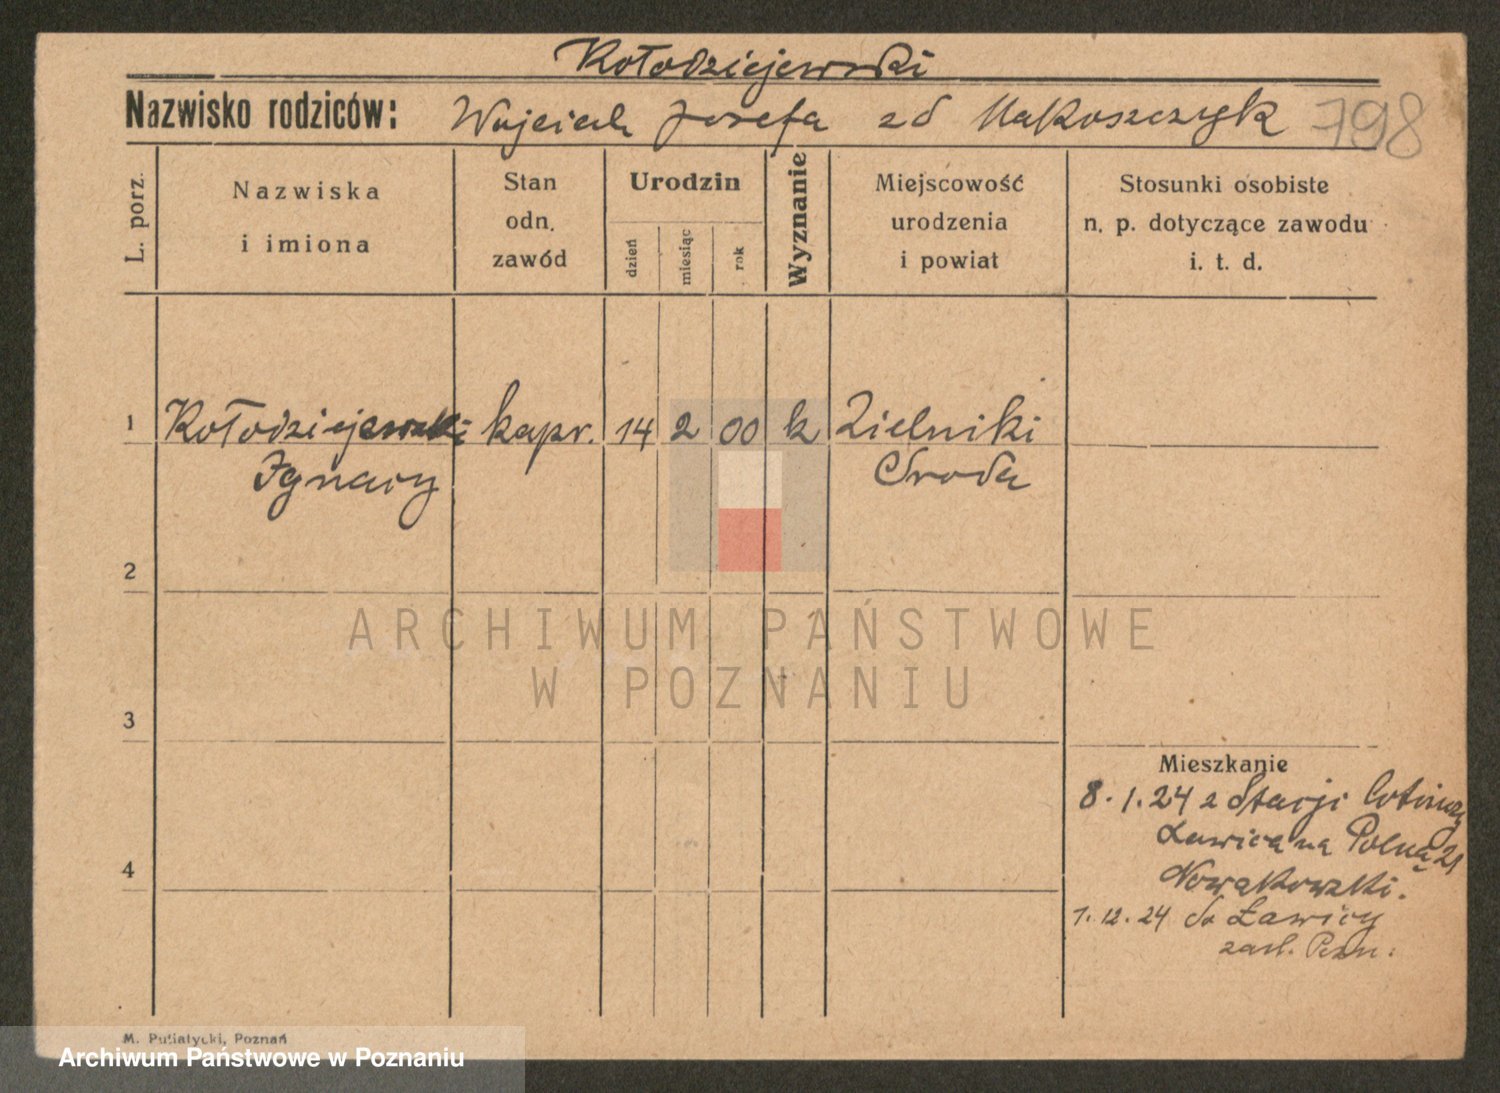 Kołodziejewski
Nazwisko rodziców: Wojciech Józefa zd Makoszczyk 798
L. porz.
Nazwiska
i imiona
Stan
odn.
zawód
Urodzin
dzień
miesiąc
rok
Wyznanie
Miejscowość
urodzenia
i powiat
Stosunki osobiste
n. p. dotyczące zawodu
i. t. d.
1 Kołodziejewski kapr. 14 2 00 k Zielniki
Ignacy Środa
2
ARCHIWUM PAŃSTWOWE
W POZNANIU
3
Mieszkanie
8.1.24 z Stacji Lotniczej
Ławica na Polną 21
Nowakowski.
4
1.12.24 do Ławicy
Pozn.
M. Putiatycki, Poznań
Archiwum Państwowe w Poznaniu